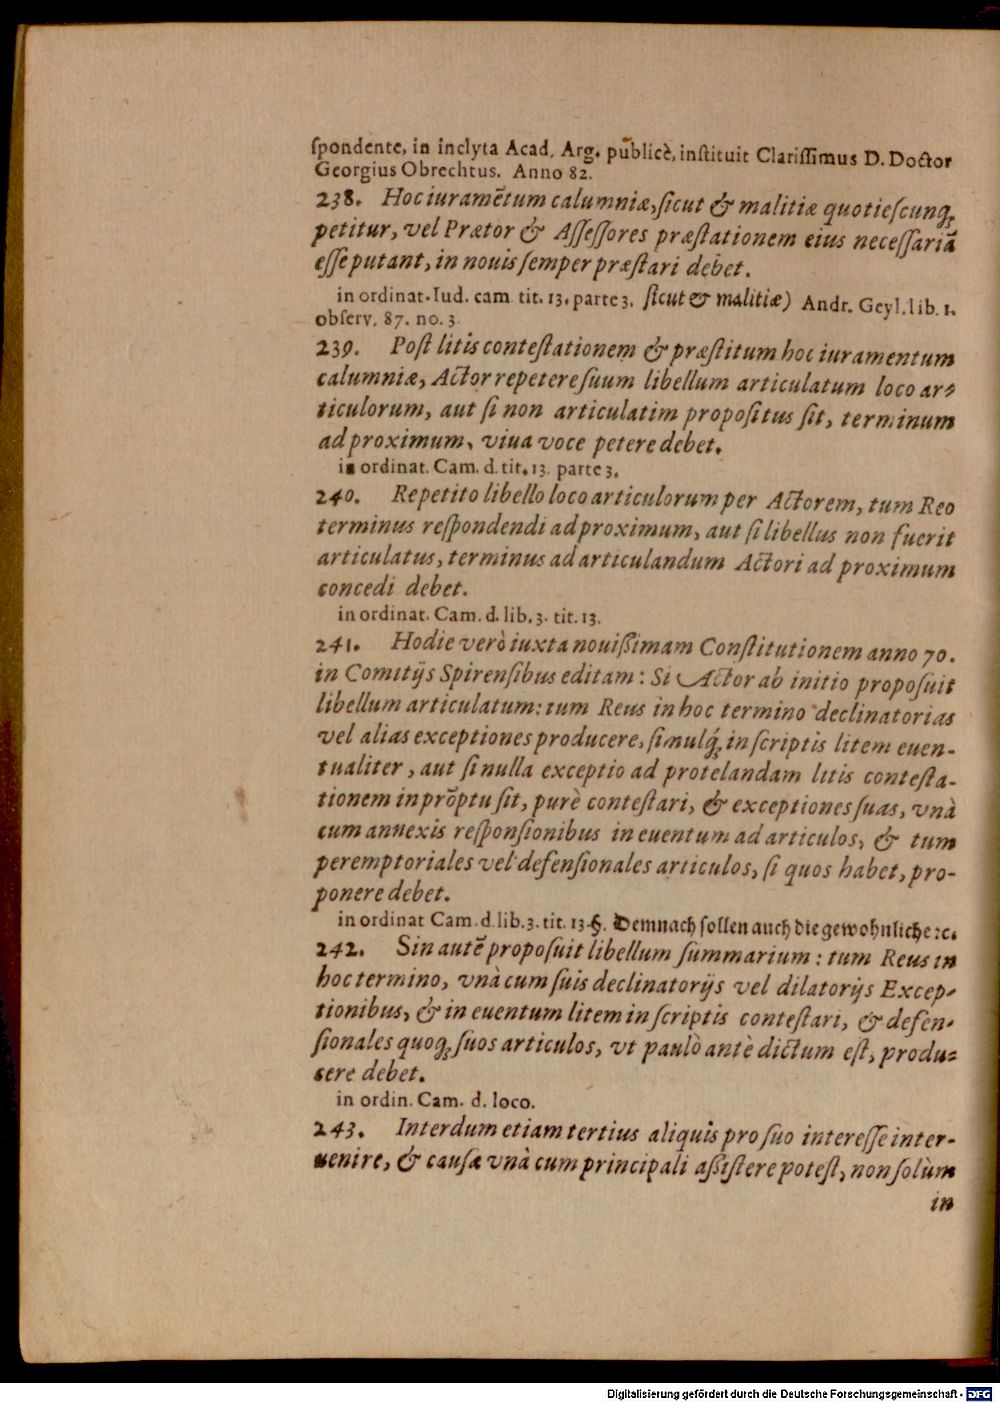 ſpondente, in inclyta Acad. Arg. publicè, inſtituit Clariſſimus D. Doctor
Georgius Obrechtus. Anno 82.
238. Hoc iuramētum calumniæ, ſicut & malitiæ quotieſcunq́;
petitur, vel Prætor & Aſſeſſores præſtationem eius neceſſariā
eſſe putant, in nouis ſemper præſtari debet.
in ordinat. Iud. cam. tit. 13. parte 3. ſicut & malitiæ) Andr. Geyl. lib. 1.
obſerv. 87. no. 3.
239. Poſt litis conteſtationem & præſtitum hoc iuramentum
calumniæ, Actor repetere ſuum libellum articulatum loco ar-
ticulorum, aut ſi non articulatim propoſitus ſit, terminum
ad proximum, viua voce petere debet.
in ordinat. Cam. d. tit. 13. parte 3.
240. Repetito libello loco articulorum per Actorem, tum Reo
terminus reſpondendi ad proximum, aut ſi libellus non fuerit
articulatus, terminus ad articulandum Actori ad proximum
concedi debet.
in ordinat. Cam. d. lib. 3. tit. 13.
241. Hodie verò iuxta nouiſſimam Conſtitutionem anno 70.
in Comitijs Spirenſibus editam: Si Actor ab initio propoſuit
libellum articulatum: tum Reus in hoc termino declinatorias
vel alias exceptiones producere, ſimulq́; in ſcriptis litem euen-
tualiter, aut ſi nulla exceptio ad protelandam litis conteſta-
tionem in prōptu ſit, purè conteſtari, & exceptiones ſuas, vnà
cum annexis reſponſionibus in euentum ad articulos, & tum
peremptoriales vel defenſionales articulos, ſi quos habet, pro-
ponere debet.
in ordinat Cam. d. lib. 3. tit. 13. §. Demnach ſollen auch die gewohnliche ꝛc.
242. Sin autē propoſuit libellum ſummarium: tum Reus in
hoc termino, vnà cum ſuis declinatorijs vel dilatorijs Excep-
tionibus, & in euentum litem in ſcriptis conteſtari, & defen-
ſionales quoq; ſuos articulos, vt paulò antè dictum eſt, produ-
cere debet.
in ordin. Cam. d. loco.
243. Interdum etiam tertius aliquis pro ſuo intereſſe inter-
uenire, & cauſæ vnà cum principali aſſiſtere poteſt, non ſolùm
in
Digitalisierung gefördert durch die Deutsche Forschungsgemeinschaft - DFG